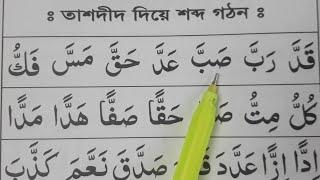 ঃ তাশদীদ দিয়ে শব্দ গঠন ঃ
قَدَّ رَبَّ صَبَّ عَدَّ حَقَّ مَسَّ فَكُّ
كُلُّ مِتُّ حَقًّا صَفًّا هَدًّا مَدًّا
اِدًّا اِزًّا عَدَّدَ صَدَّقَ نَعَّمَ كَذَّبَ